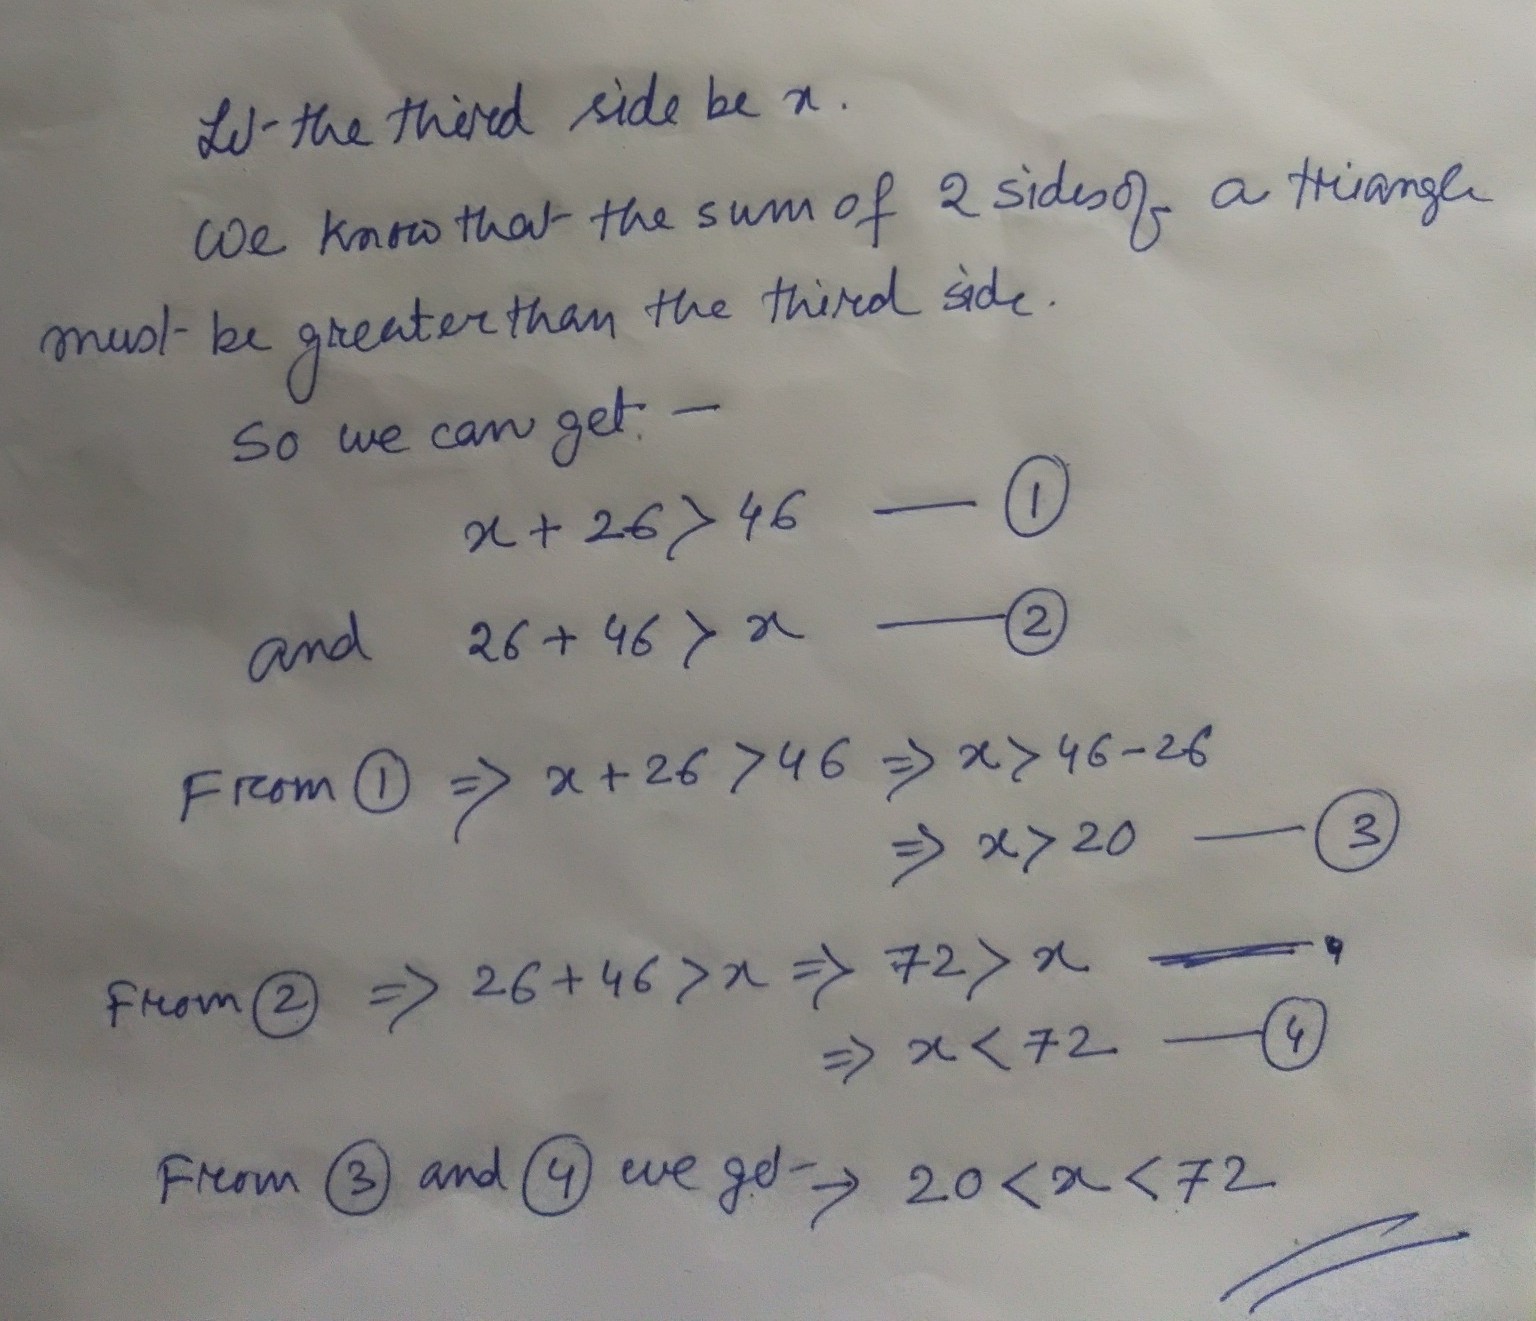 Let the third side be x.
We know that the sum of 2 sides of a triangle
must be greater than the third side.
So we can get. —
x + 26 > 46 — ①
and 26 + 46 > x — ②
From ① ⇒ x + 26 > 46 ⇒ x > 46 - 26
⇒ x > 20 — ③
From ② ⇒ 26 + 46 > x ⇒ 72 > x —
⇒ x < 72 — ④
From ③ and ④ we get → 20 < x < 72